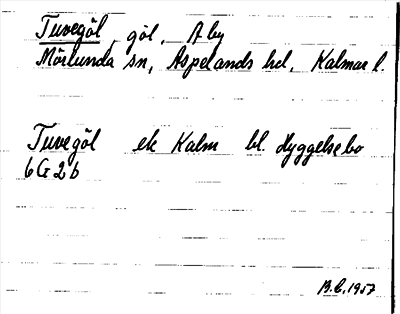 Tuvegöl, göl, Aby
Mörlunda sn, Aspelands hd, Kalmar l.
Tuvegöl ek Kalm bl. Hyggelsebo
6G2b
B.E.1957